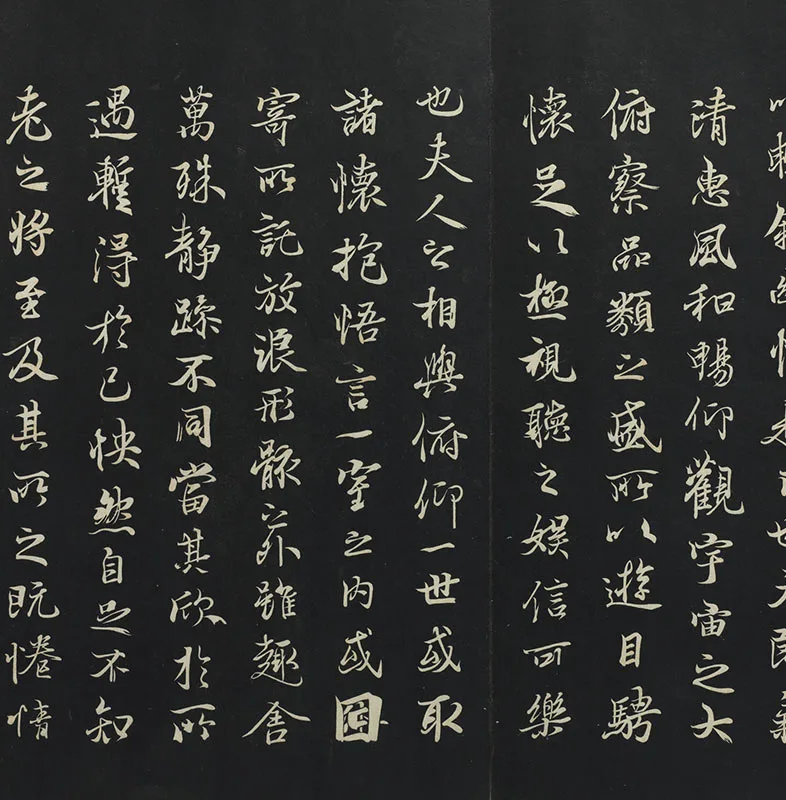 清惠風和暢仰觀宇宙之大
俯察品類之盛所以遊目騁
懷足以極視聽之娛信可樂
也夫人之相與俯仰一世或取
諸懷抱悟言一室之內或因
寄所託放浪形骸之外雖趣舍
萬殊靜躁不同當其欣於所
遇暫得於己怏然自足不知
老之將至及其所之既惓情